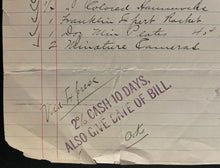 " Colored Hammocks
1 Franklin Expert Racket
1 Doz Mein Plates 4 x 5
2 Miniature Cameras
Via Express
2% CASH 10 DAYS,
ALSO GIVE DATE OF BILL.